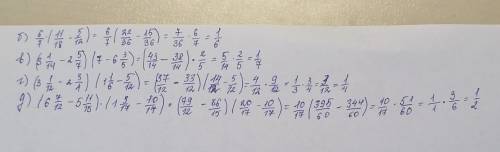 б) 6/7 (11/18 - 5/12) = 6/7 (22/36 - 15/36) = 7/36 · 6/7 = 1/6
в) (3 1/14 - 2 5/7) (7 - 6 3/5) = (43/14 - 38/14) · 2/5 = 5/14 · 2/5 = 1/7
г) (3 1/12 - 2 3/4) (1 1/6 - 5/12) = (37/12 - 33/12) (14/12 - 5/12) = 4/12 · 9/12 = 1/3 · 3/4 = 3/12 = 1/4
д) (6 7/12 - 5 11/15) · (1 3/17 - 10/17) = (79/12 - 86/15) (20/17 - 10/17) = 10/17 (395/60 - 344/60) = 10/17 · 51/60 = 1/1 · 3/6 = 1/2